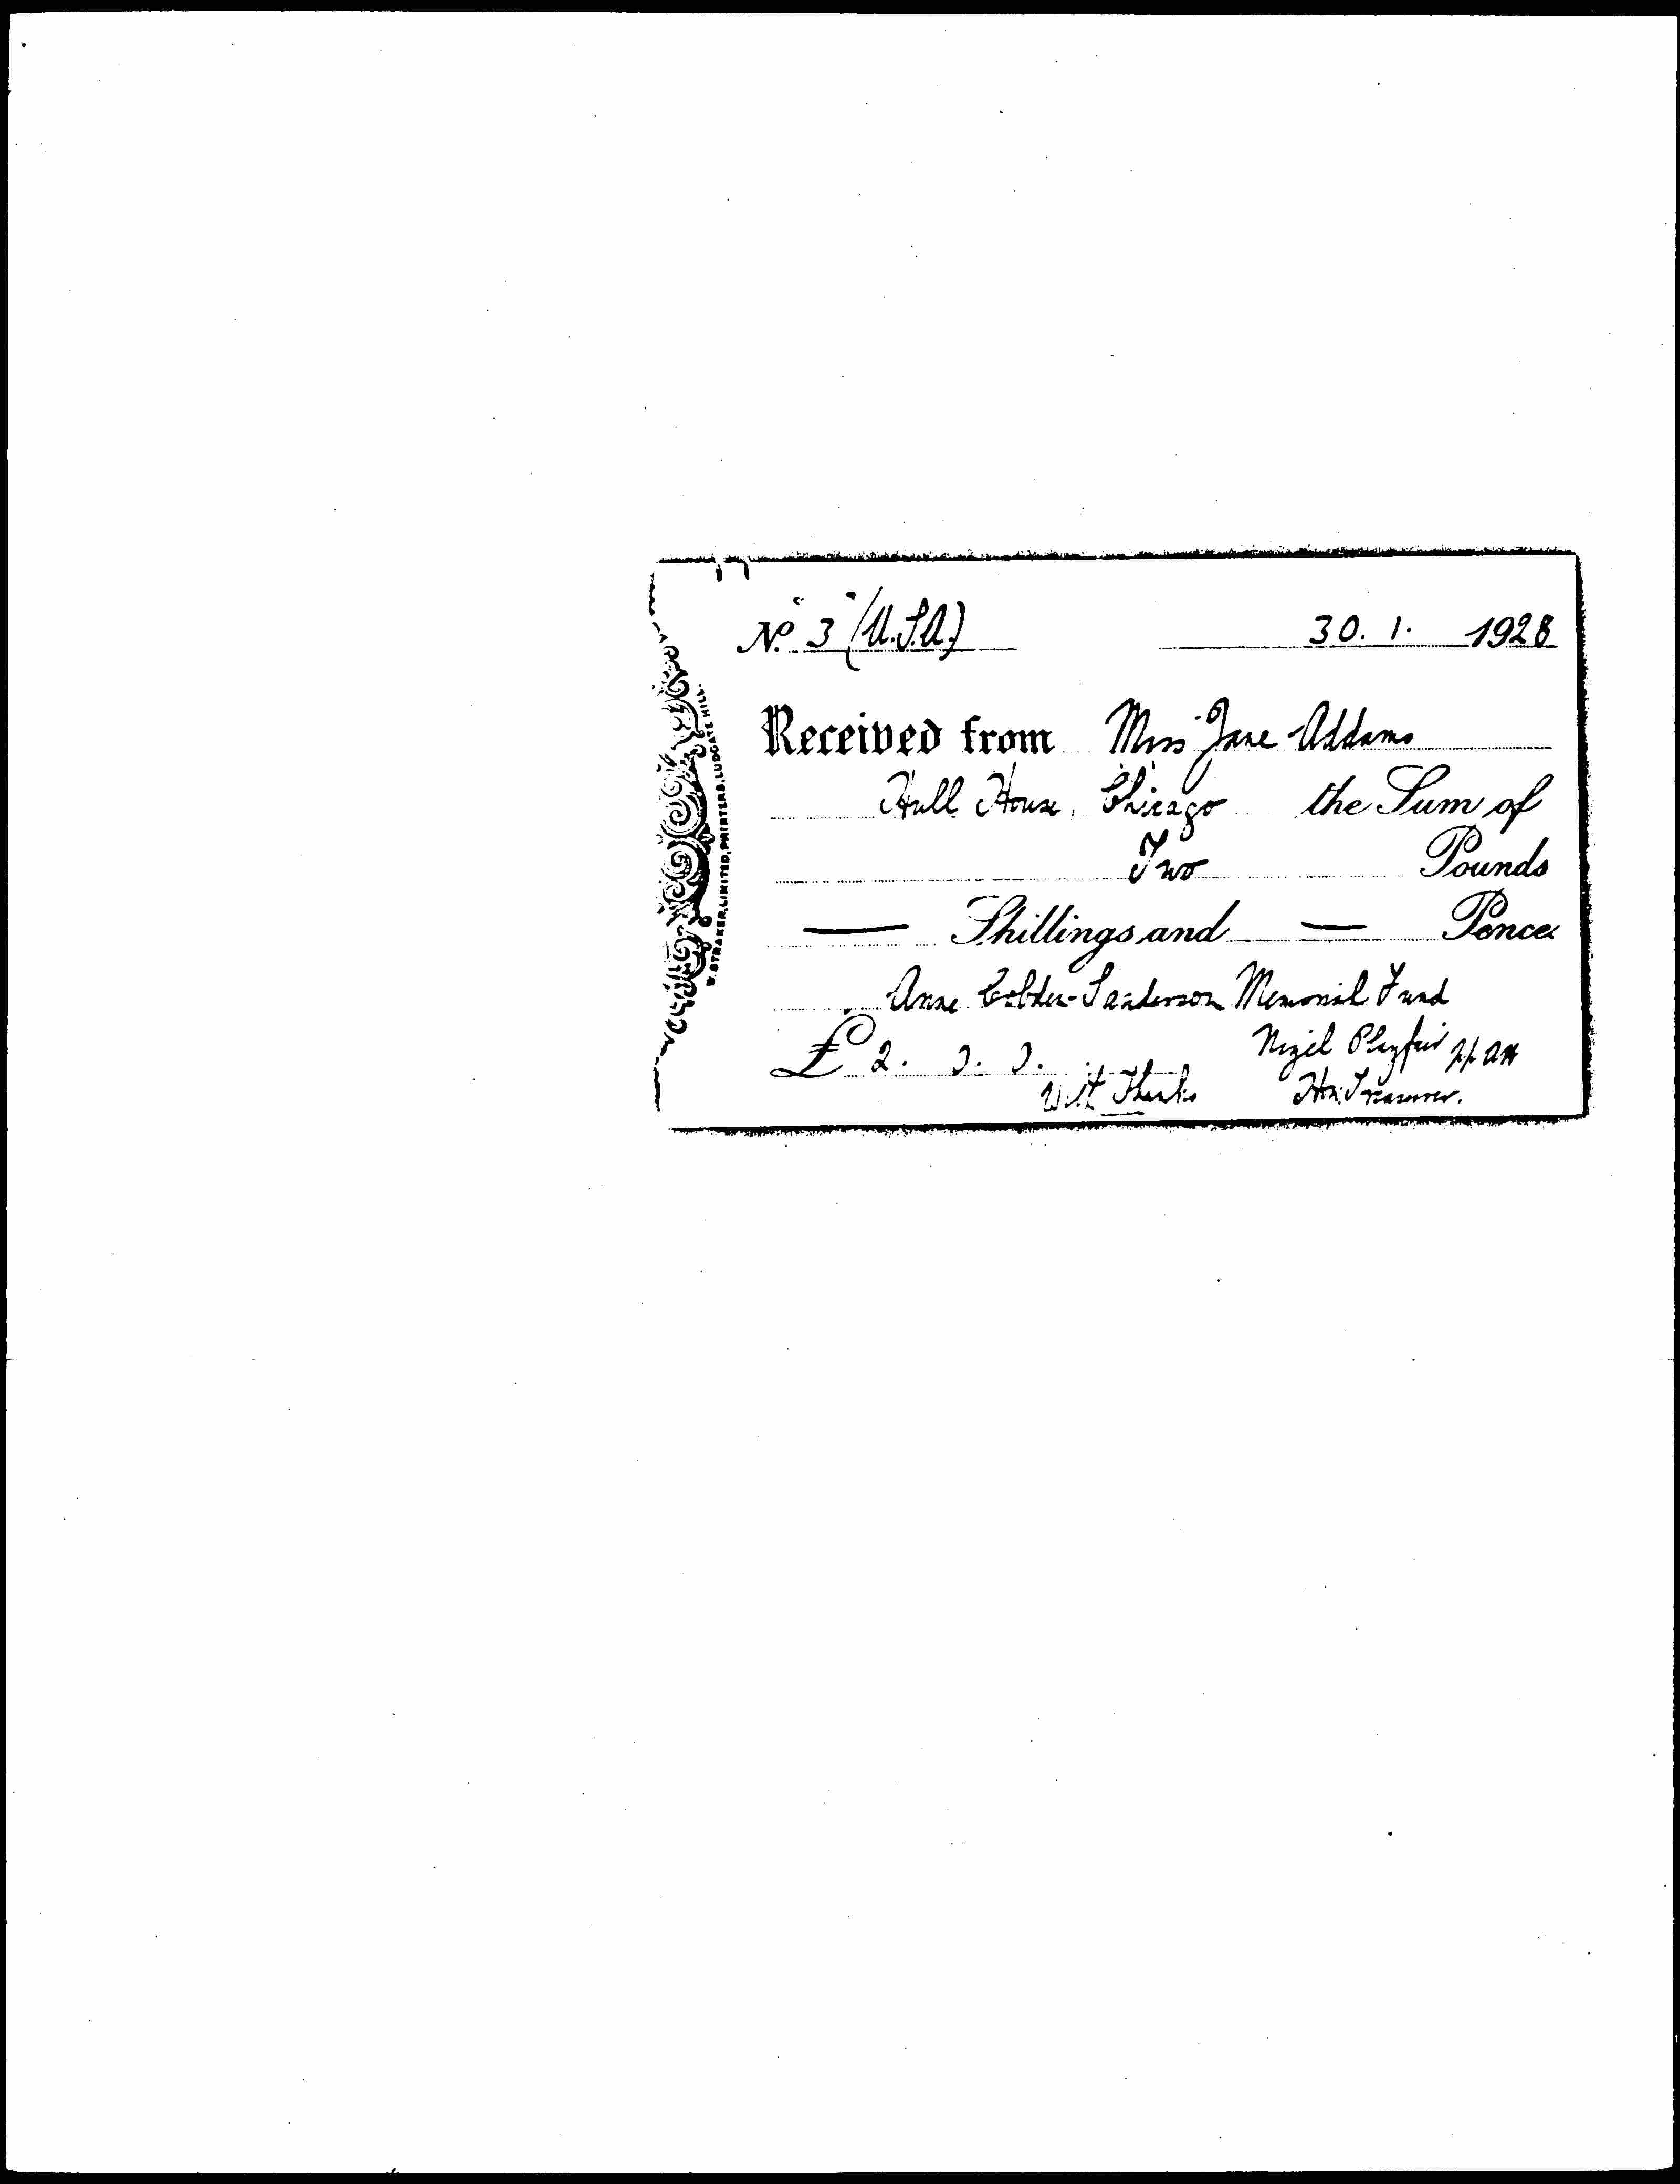 No. 3 (U.S.A.) 30. 1. 1928
Received from Miss Jane Addams
Hull House, Chicago the Sum of
Two Pounds
— Shillings and — Pence
Anne Cobden-Sanderson Memorial Fund
£ 2. 0. 0. Nigel Playfair
With Thanks Hon. Treasurer.
W. STRAKER, LIMITED, PRINTERS, LUDGATE HILL.